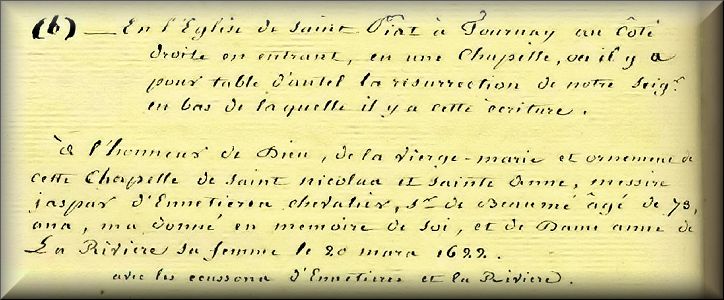 (b) — En l'Eglise de Saint Piat à Tournay au côté
droite en entrant, en une Chapelle, ou il y a
pour table d'autel la résurrection de notre Seigr.
en bas de laquelle il y a cette écriture.
à l'honneur de Dieu, de la vierge-marie et ornement de
cette Chapelle de Saint nicolas et sainte Anne, messire
jaspar d'Ennetieres chevalier, Sr. de Beaumé âgé de 73,
ans, m'a donné en memoire de soi, et de Dame anne de
La Riviere sa femme le 20 mars 1622.
avec les ecussons d'Ennetieres et la Riviere.